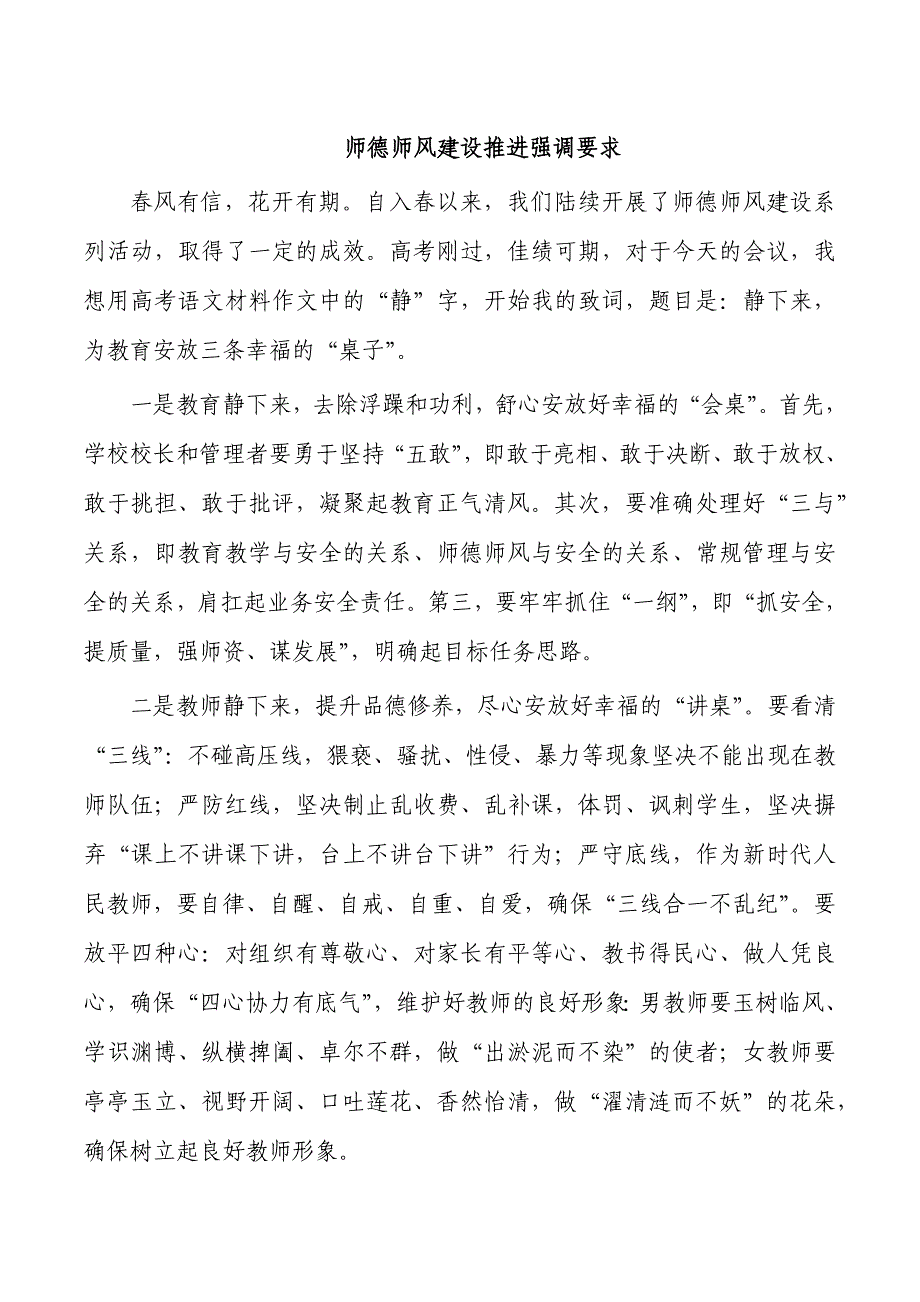 师德师风建设推进强调要求
春风有信，花开有期。自入春以来，我们陆续开展了师德师风建设系
列活动，取得了一定的成效。高考刚过，佳绩可期，对于今天的会议，我
想用高考语文材料作文中的“静”字，开始我的致词，题目是：静下来，
为教育安放三条幸福的“桌子”。
一是教育静下来，去除浮躁和功利，舒心安放好幸福的“会桌”。首先，
学校校长和管理者要勇于坚持“五敢”，即敢于亮相、敢于决断、敢于放权、
敢于挑担、敢于批评，凝聚起教育正气清风。其次，要准确处理好“三与”
关系，即教育教学与安全的关系、师德师风与安全的关系、常规管理与安
全的关系，肩扛起业务安全责任。第三，要牢牢抓住“一纲”，即“抓安全，
提质量，强师资、谋发展”，明确起目标任务思路。
二是教师静下来，提升品德修养，尽心安放好幸福的“讲桌”。要看清
“三线”：不碰高压线，猥亵、骚扰、性侵、暴力等现象坚决不能出现在教
师队伍；严防红线，坚决制止乱收费、乱补课，体罚、讽刺学生，坚决摒
弃“课上不讲课下讲，台上不讲台下讲”行为；严守底线，作为新时代人
民教师，要自律、自醒、自戒、自重、自爱，确保“三线合一不乱纪”。要
放平四种心：对组织有尊敬心、对家长有平等心、教书得民心、做人凭良
心，确保“四心协力有底气”，维护好教师的良好形象：男教师要玉树临风、
学识渊博、纵横捭阖、卓尔不群，做“出淤泥而不染”的使者；女教师要
亭亭玉立、视野开阔、口吐莲花、香然怡清，做“濯清涟而不妖”的花朵，
确保树立起良好教师形象。